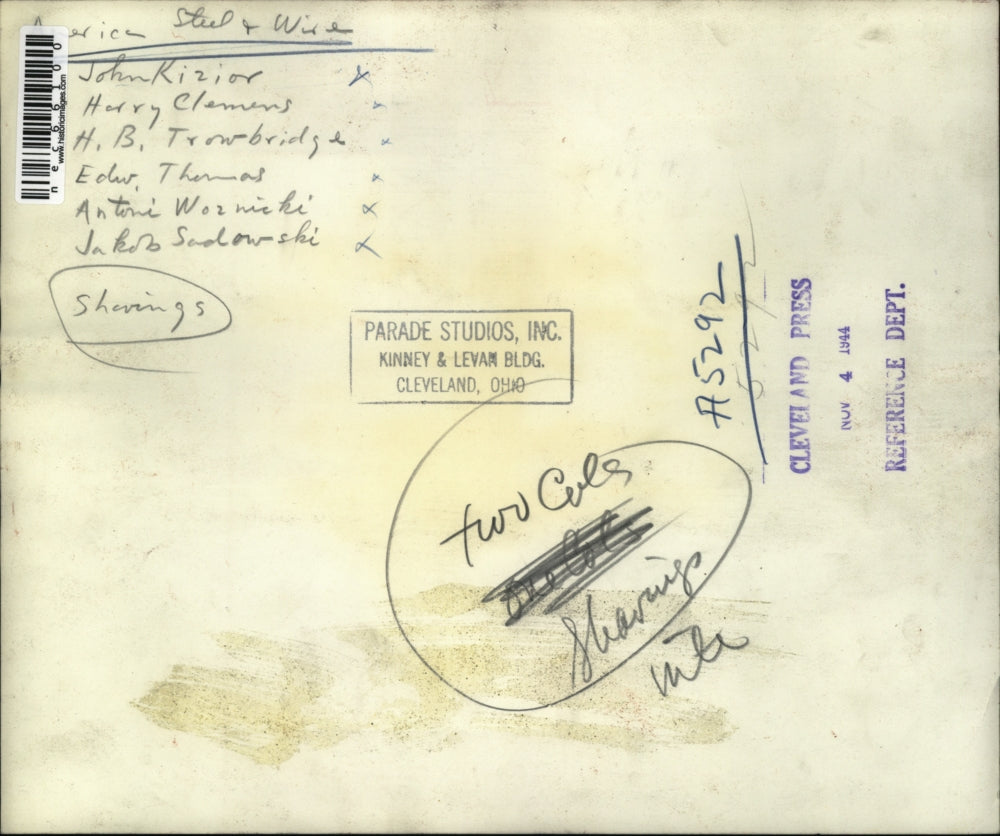 America Steel & Wire
John Kizior x
Harry Clemens x
H. B. Trowbridge x
Edw. Thomas x
Antoni Woznicki x
Jakob Sadowski x
Shavings
necc66100
www.historicimages.com
PARADE STUDIOS, INC.
KINNEY & LEVAN BLDG.
CLEVELAND, OHIO
A5292
5292
CLEVELAND PRESS
NOV 4 1944
REFERENCE DEPT.
two Cols
One Cols
Shavings